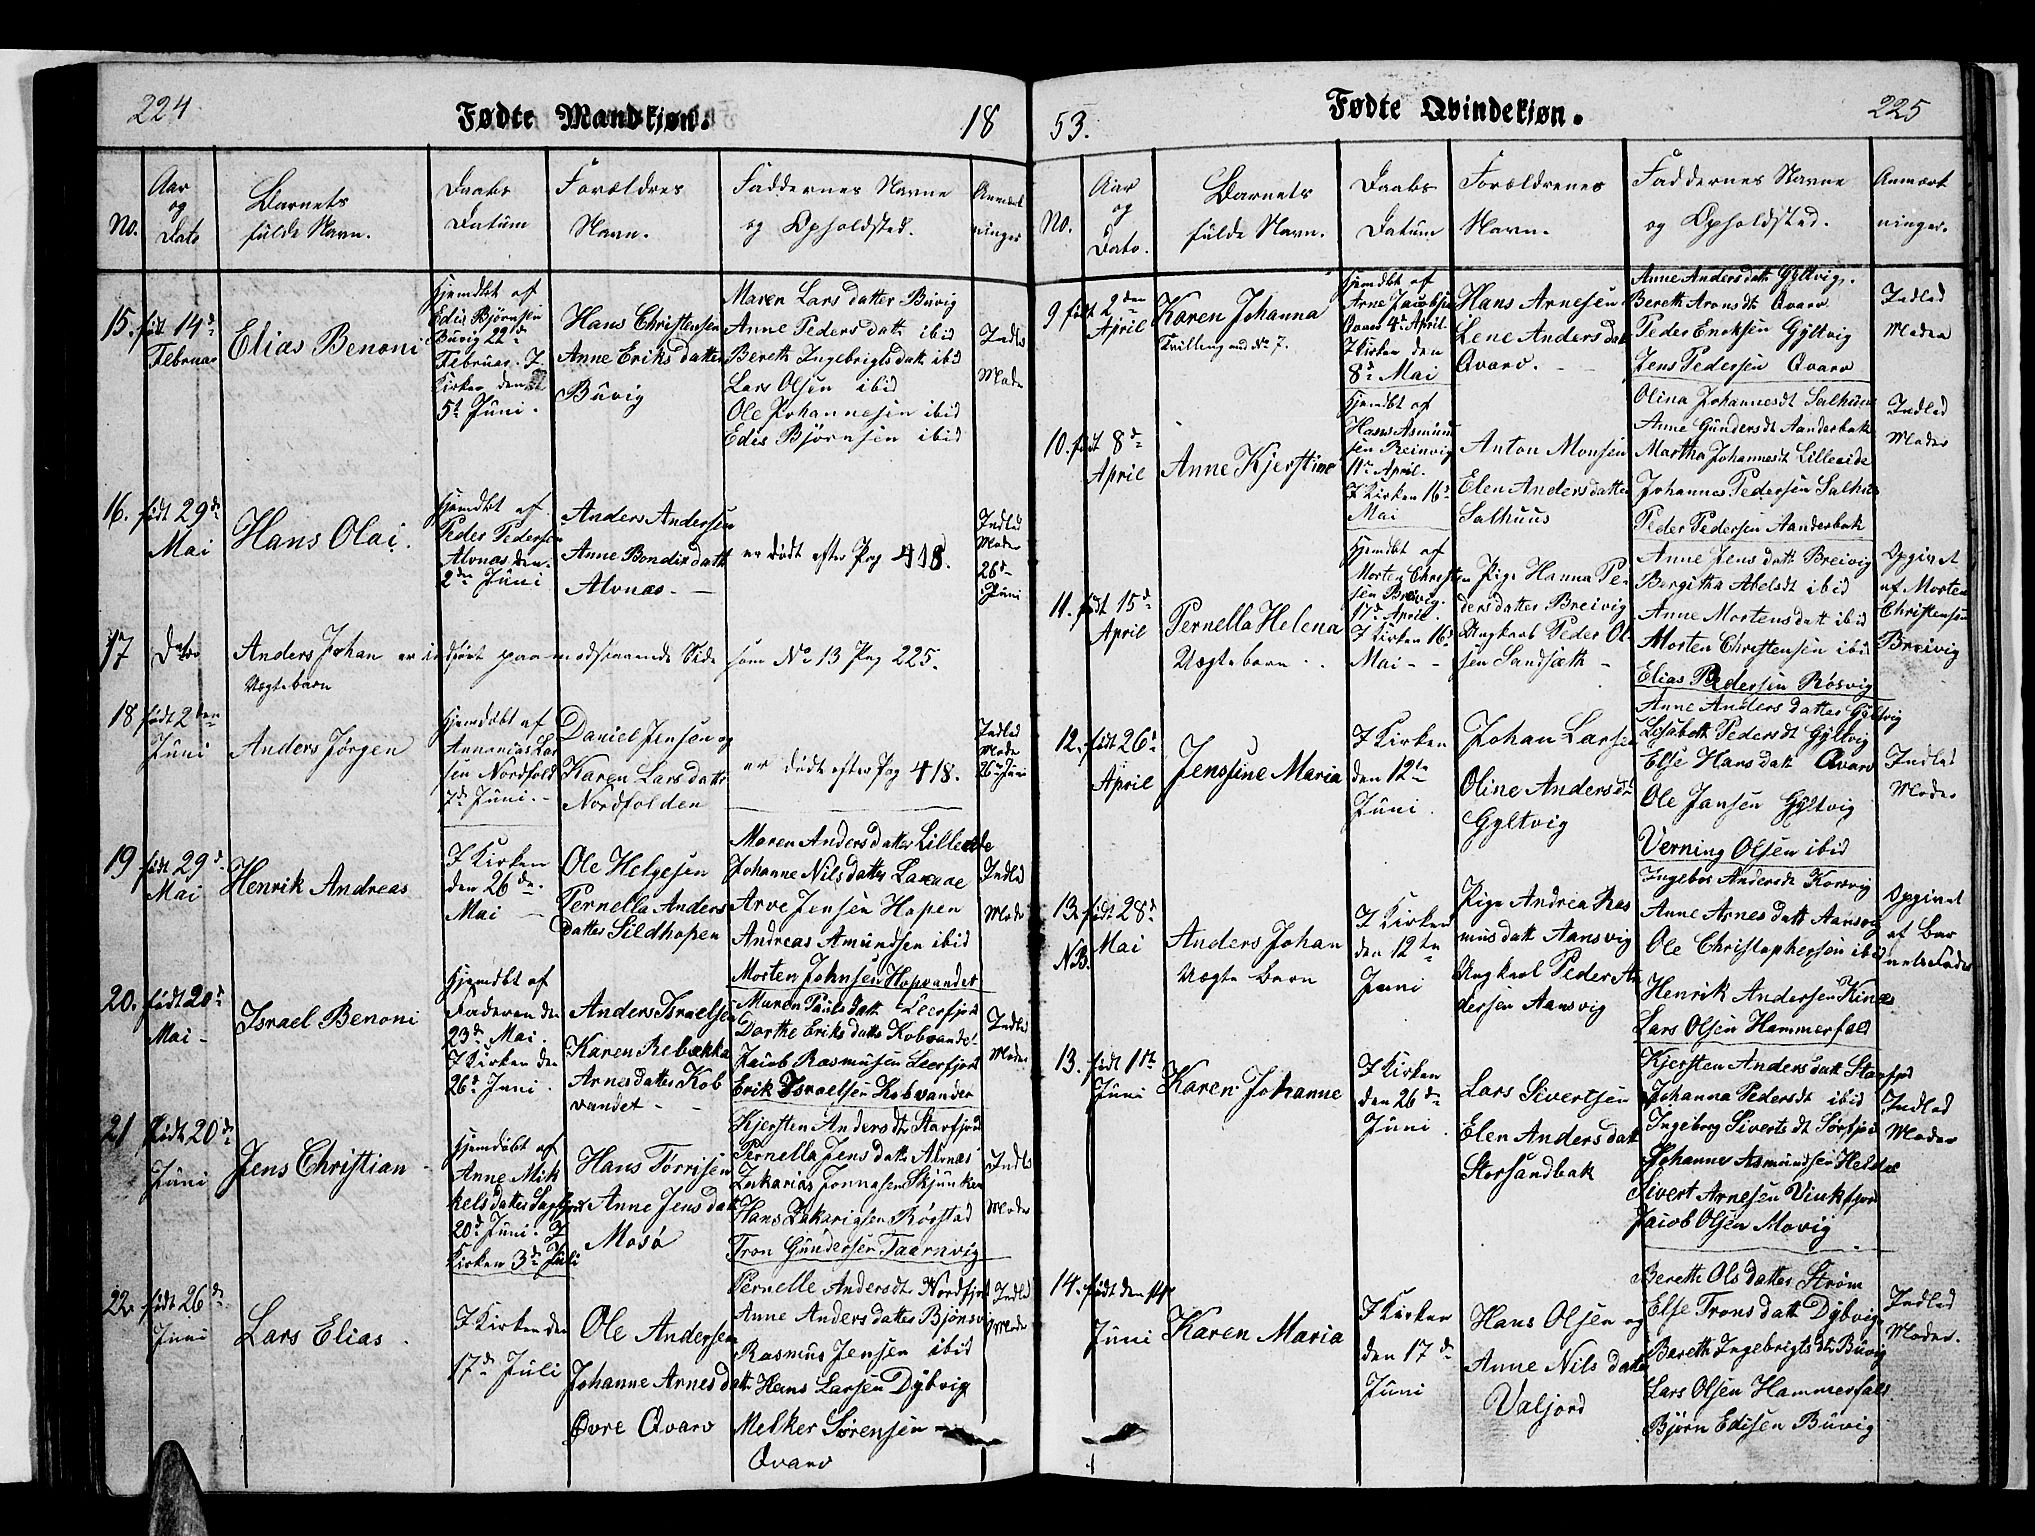 224.
Fødte Mandkjøn.
18
No.
Aar
og
Dato
Barnets
fulde Navn.
Daabs
Datum
Forældres
Navn.
Faddernes Navne
og Opholdsted.
Anmærk
ninger
15. født 14d
Februar
Elias Benoni
Hjemdbt af
Edis Bjørnsen
Buvig 22d
Februar. I
Kirken den
5t Juni.
Hans Christensen
Anne Eriks datter
Büvig
Maren Lars datter Büvig
Anne Peders datt ibid
Bereth Ingebrigts datt ibid
Lars Olsen ibid
Ole Johannesen ibid
Edis Bjørnsen ibid
Indled
Moder
16. født 29de
Mai
Hans Olai.
Hjemdbt af
Peder Pedersen
Alvnæs den
2den Juni
Anders Andersen
Anne Bendix datt
Alvnæs. -
er dødt efter Pag 418.
Indled
Moder
26d
Juni
17
Dato
Anders Johan er indført paa modstaaende Side som No 13 Pag 225.
Uægtebarn
18 født 2den
Juni
Anders Jørgen
Hjemdøbt af
Annanias Lar
sen Nordfold
7d Juni. -
Daniel Jensen og
Karen Lars datter
Nordfolden
er dødt efter Pag 418.
Indled
Mode
26 Juni
19 født 29d
Mai
Henrik Andreas
I Kirken
den 26de.
Mai -
Ole Helgesen
Pernella Anders
datter Sildhopen
Maren Anders datter Lilleeide
Johanne Nils datter
Arve Jensen Hopen
Andreas Amundsen ibid
Morten Johnsen Hopvandet
Indled
Moder
20. født 20d
Mai -
Israel Benoni
Hjemdbt af
Faderen den
23d Mai.
I Kirken den
26d Juni.
Anders Israelsen
Karen Rebækka
Arnes datter Kob
vandet - -
Maren Pauls datt Leerfjord
Dorthe Eriks datter Kobvandet
Jacob Rasmusen Leerfjord
Erik Israelsen Kobvandet
Indled
Moder
21 født 20de
Juni
Jens Christian
Hjemdøbt af
Anne Mik
kels datter
20d Juni. I
Kirken 3d Juli
Hans Torrisen
Anne Jens datt
Mosø
Kjersten Andersdtr Storfjord
Pernella Jens datter Alvnæs
Zakarias Jonnasen
Hans Zakariasen Røsstad
Tron Gundersen Taarnvig
Indled
Moder
22 født 26de
Juni
Lars Elias.
I Kirken den
17de Juli
Ole Andersen
Johanne Arnes datt
Øvre Qvarv
Pernelle Andersdt Nordfjord
Anne Anders datter Bjønsvi
Rasmus Jensen ibid
Hans Larsen Dybvig
Melker Sørensen -
Qvarv
Indled
Moder
53.
Fødte Qvindekjøn.
225
No.
Aar
og
Dato.
Barnets
fulde Navn.
Daabs
Datum
Forældrenes
Navn.
Faddernes Navne
og Opholdsted.
Anmærk
ninger.
9 født 2den
April
Karen Johanna
Tvilling med No 7.
Hjemdbt af
Arne Jacobsen
Qvarv 4d April.
I Kirken den
8d Mai
Hans Arnesen
Lene Anders datt
Qvarv. -
Anne Anders datt Gyltvig.
Bereth Arnsdt Qvarv
Peder Enoksen Gyltvig
Jens Pedersen Qvarv
Indled
Moder
10. født 8d
April
Anne Kjerstine
Hjemdbt af
Hans Asmund
sen Reinvig
11te April.
I Kirken 16d
Mai
Anton Monsen
Elen Anders datter
Salhuus
Olina Johannesdt Salhuus
Anne Gundersdt Aanderbak
Martha Johannesdt Lilleeide
Johannes Pedersen Salhus
Peder Pedersen Aanderbak
Indled
Moder
11. født 15d
April
Pernella Helena
Uægtebarn . .
Hjemdbt af
Morten Christen
sen Brevig.
17d April.
I Kirken 16d
Mai - -
Pige Hanna Pe-
ders datter Breivig
Ungkarl Peder Ol
sen Sandsæth -
Anne Jens datt Breivig
Bergitha Abelsdt ibid
Anne Mortens datt ibid
Morten Christensen ibid
Elias Pedersen Røsvig
Opgivet
af Morten
Christensen
Breivig
12. født 26d
April
Jensine Maria
I Kirken
den 12te
Juni.
Johan Larsen
Oline Andersdt
Gyltvig
Anne Anders datter Gyltvig
Lisabeth Pedersdt Gyltvig
Else Hans datt Qvarv
Ole Jansen Gyltvig
Verning Olsen ibid
Indled
Moder
13 født 28d
NB. Mai
Anders Johan
Uægte Barn
I Kirken
den 12te
Juni
Pige Andrea Ras
mus datt Aansvig
Ungkarl Peder An
dersen Aansvig
Ingebor Andersdt Korsvig
Anne Arnes datt Aansvig
Ole Christophersen ibid
Henrik Andersen Kines
Lars Olsen Hammerfald
Opgivet
af Bar
nets Fader
13. født 1te
Juni
Karen Johanne
I Kirken
den 26de
Juni.
Lars Sivertsen
Elen Anders datt
Storsandbak
Kjersten Anders datt Storfjord
Johanna Pedersdt ibid
Ingeborg Sivertsdt Sørfjord
Johannes Asmundsen
Sivert Arnesen Vinkfjord
Jacob Olsen Movig
Indled
Moder
14. født den 14de
Juni
Karen Maria
I Kirken
den 17d
Juni
Hans Olsen og
Anne Nils datter
Valjord
Bereth Ols datter Strøm
Else Trons datt Dybvig
Bereth Ingebrigtsdtr Büvig
Lars Olsen Hammerfald
Bjørn Edisen Büvig
Indled
Moder.